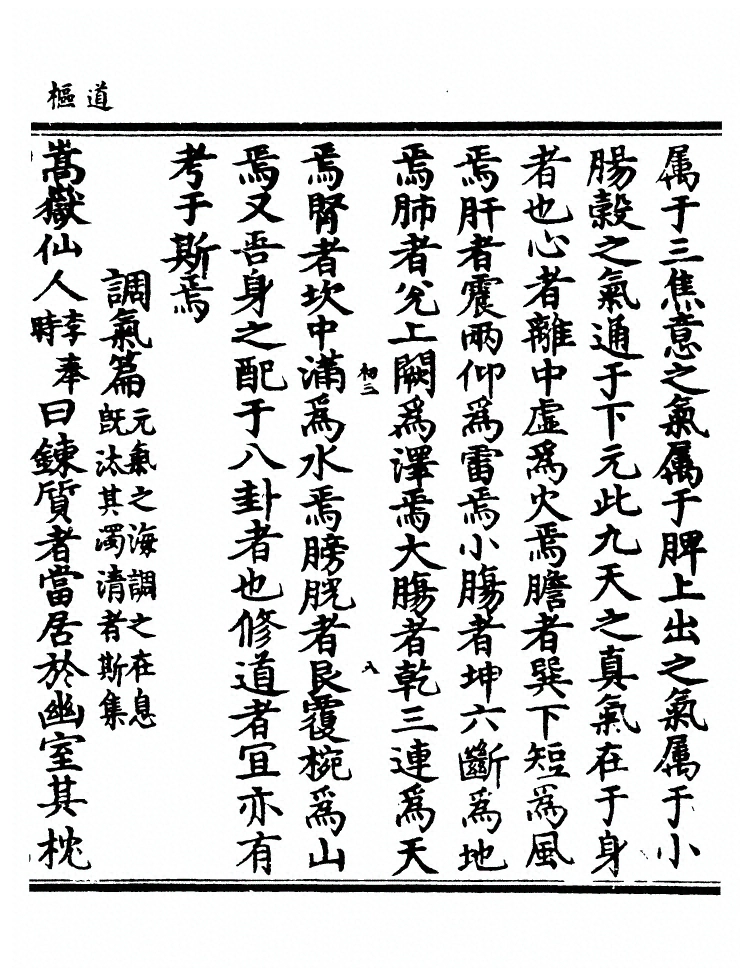 道樞
属于三焦意之氣属于脾上出之氣属于小
腸穀之氣通于下元此九天之真氣在于身
者也心者離中虛為火焉膽者巽下短為風
焉肝者震兩仰為雷焉小腸者坤六斷為地
焉肺者兊上闕為澤焉大腸者乾三連為天
初三
八
焉腎者坎中滿為水焉膀胱者艮覆椀為山
焉又吾身之配于八卦者也修道者冝亦有
考于斯焉
調氣篇元氣之海調之在息
旣汰其濁清者斯集
嵩嶽仙人李奉
時曰鍊質者當居於幽室其枕